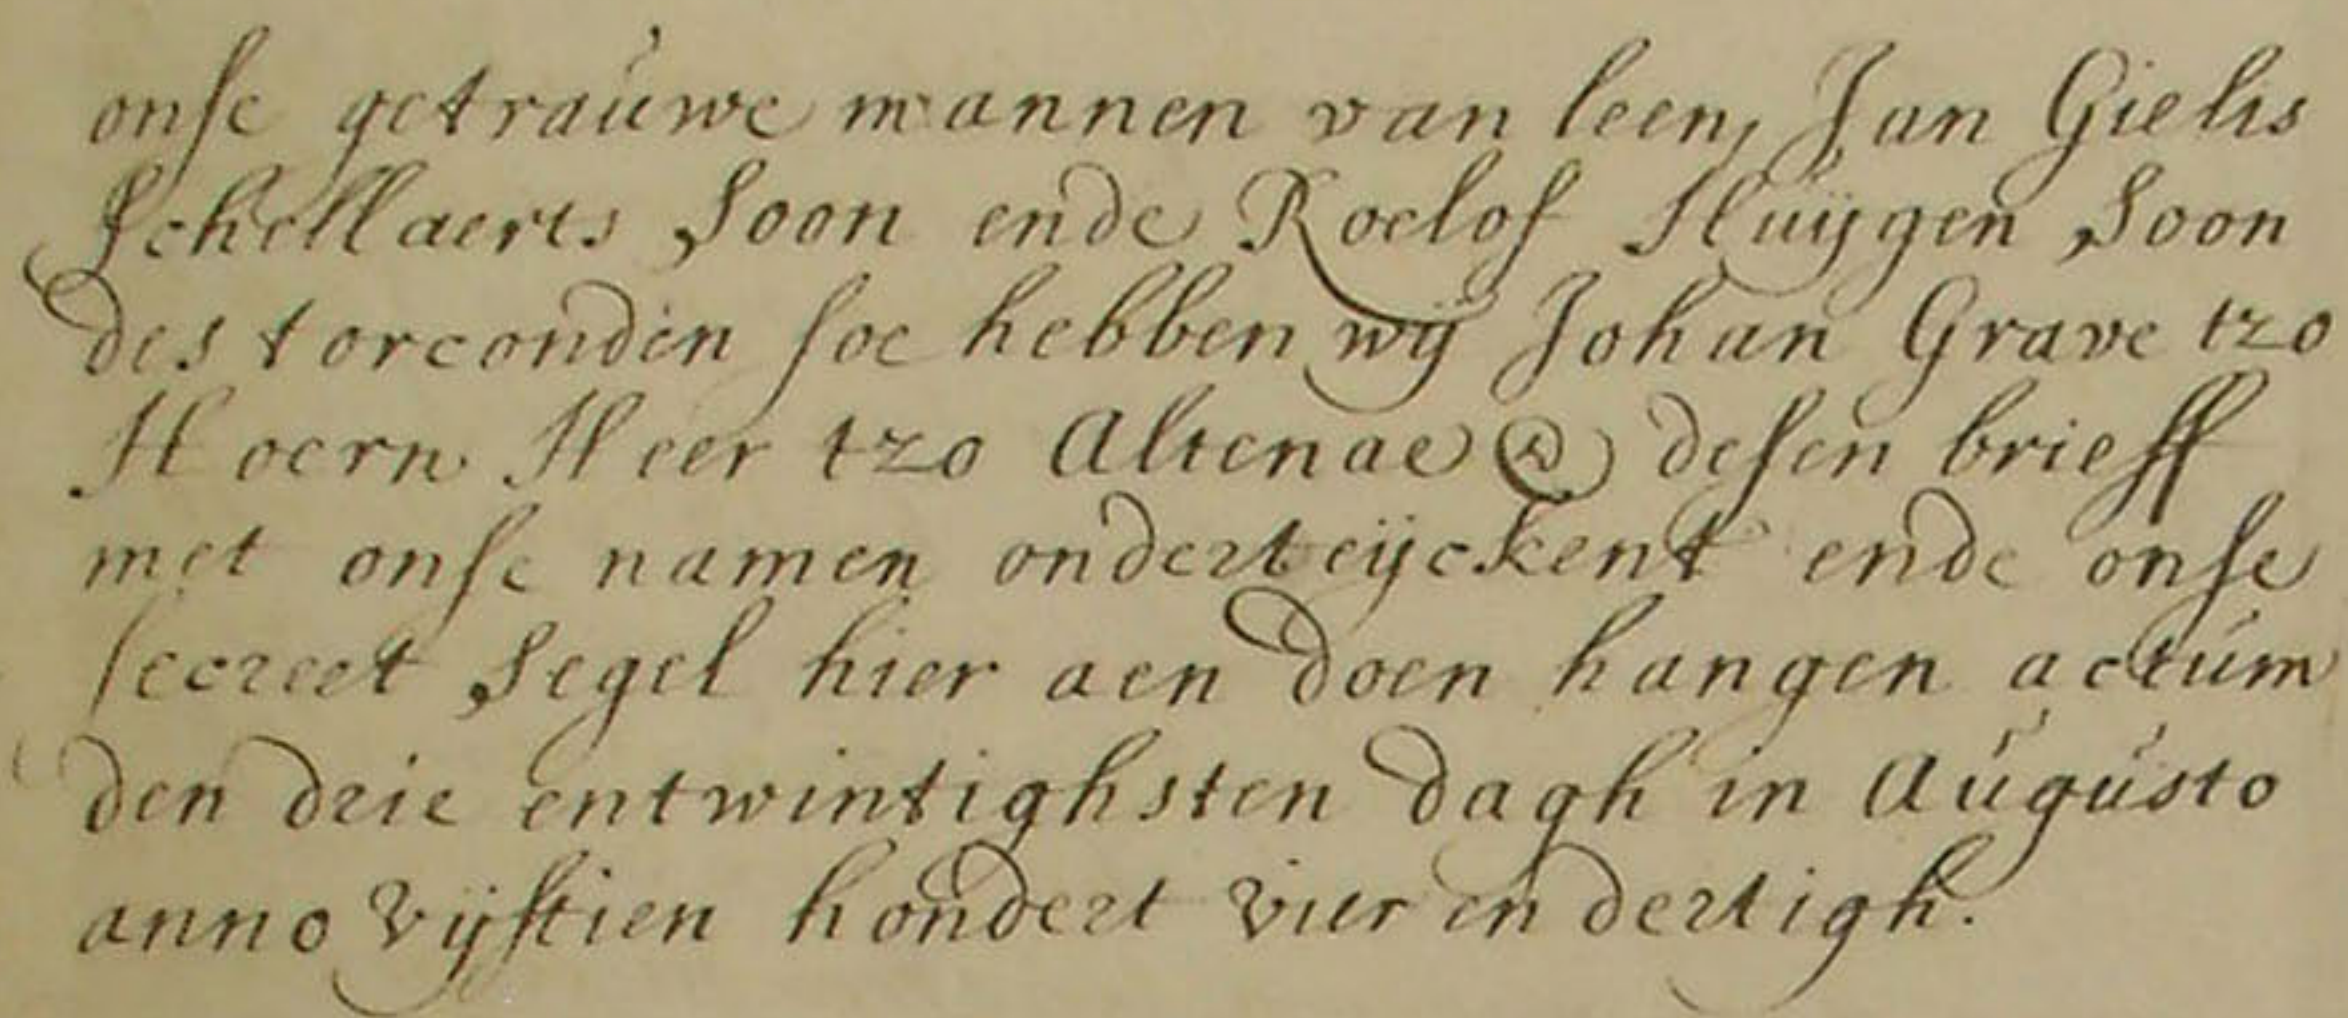 onse getrauwe mannen van leen, Jan Gielis
Schellaerts Soon ende Roelof Huijgen Soon
des torconden soe hebben wij Johan Grave tzo
Hoern Heer tzo Altenae &. desen brieff
met onse namen onderteijckent ende onse
secreet Segel hier aen doen hangen actum
den drie entwintighsten dagh in Augusto
anno vijftien hondert vier en dertigh.